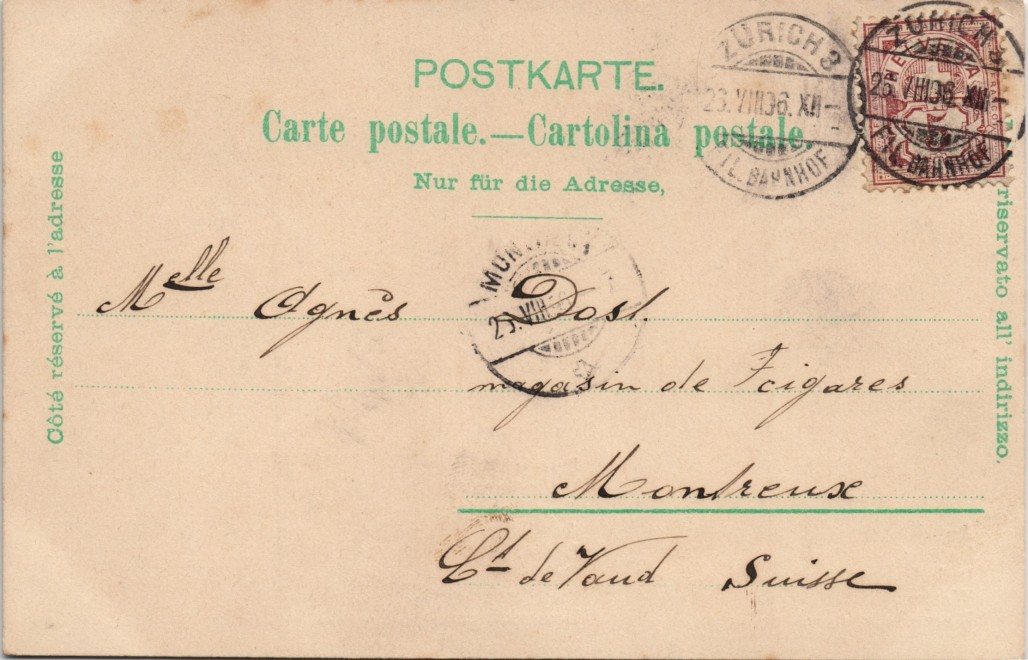 POSTKARTE.
Carte postale.—Cartolina postale.
Nur für die Adresse,
Côté réservé à l'adresse
riservato all' indirizzo.
ZÜRICH 8
23. VIII 96. XII—
FIL. BAHNHOF
ZÜRICH 8
23. VIII 96. XII—
FIL. BAHNHOF
Melle Agnès Dosl.
magasin de cigares
Montreux
Ct de Vaud Suisse